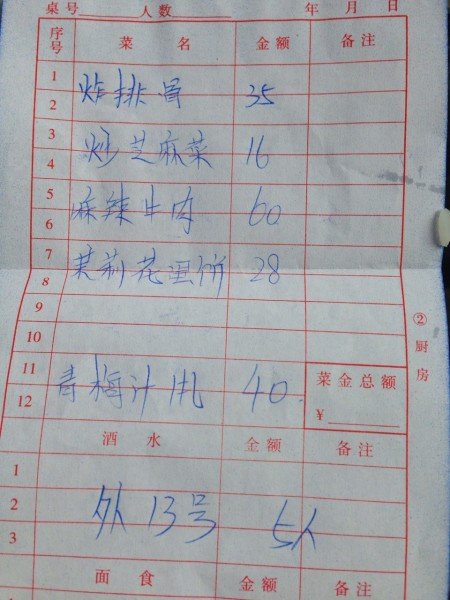 桌号 人数 年 月 日
序号 菜 名 金额 备注
1
炸排骨 35
2
3
炒芝麻菜 16
4
5
麻辣牛肉 60
6
7
茉莉花蛋饼 28
8
9
10
11
青梅汁 40
12
菜金总额
¥
②厨房
酒水 金额 备注
1
2
外13号 5人
3
面食 金额 备注